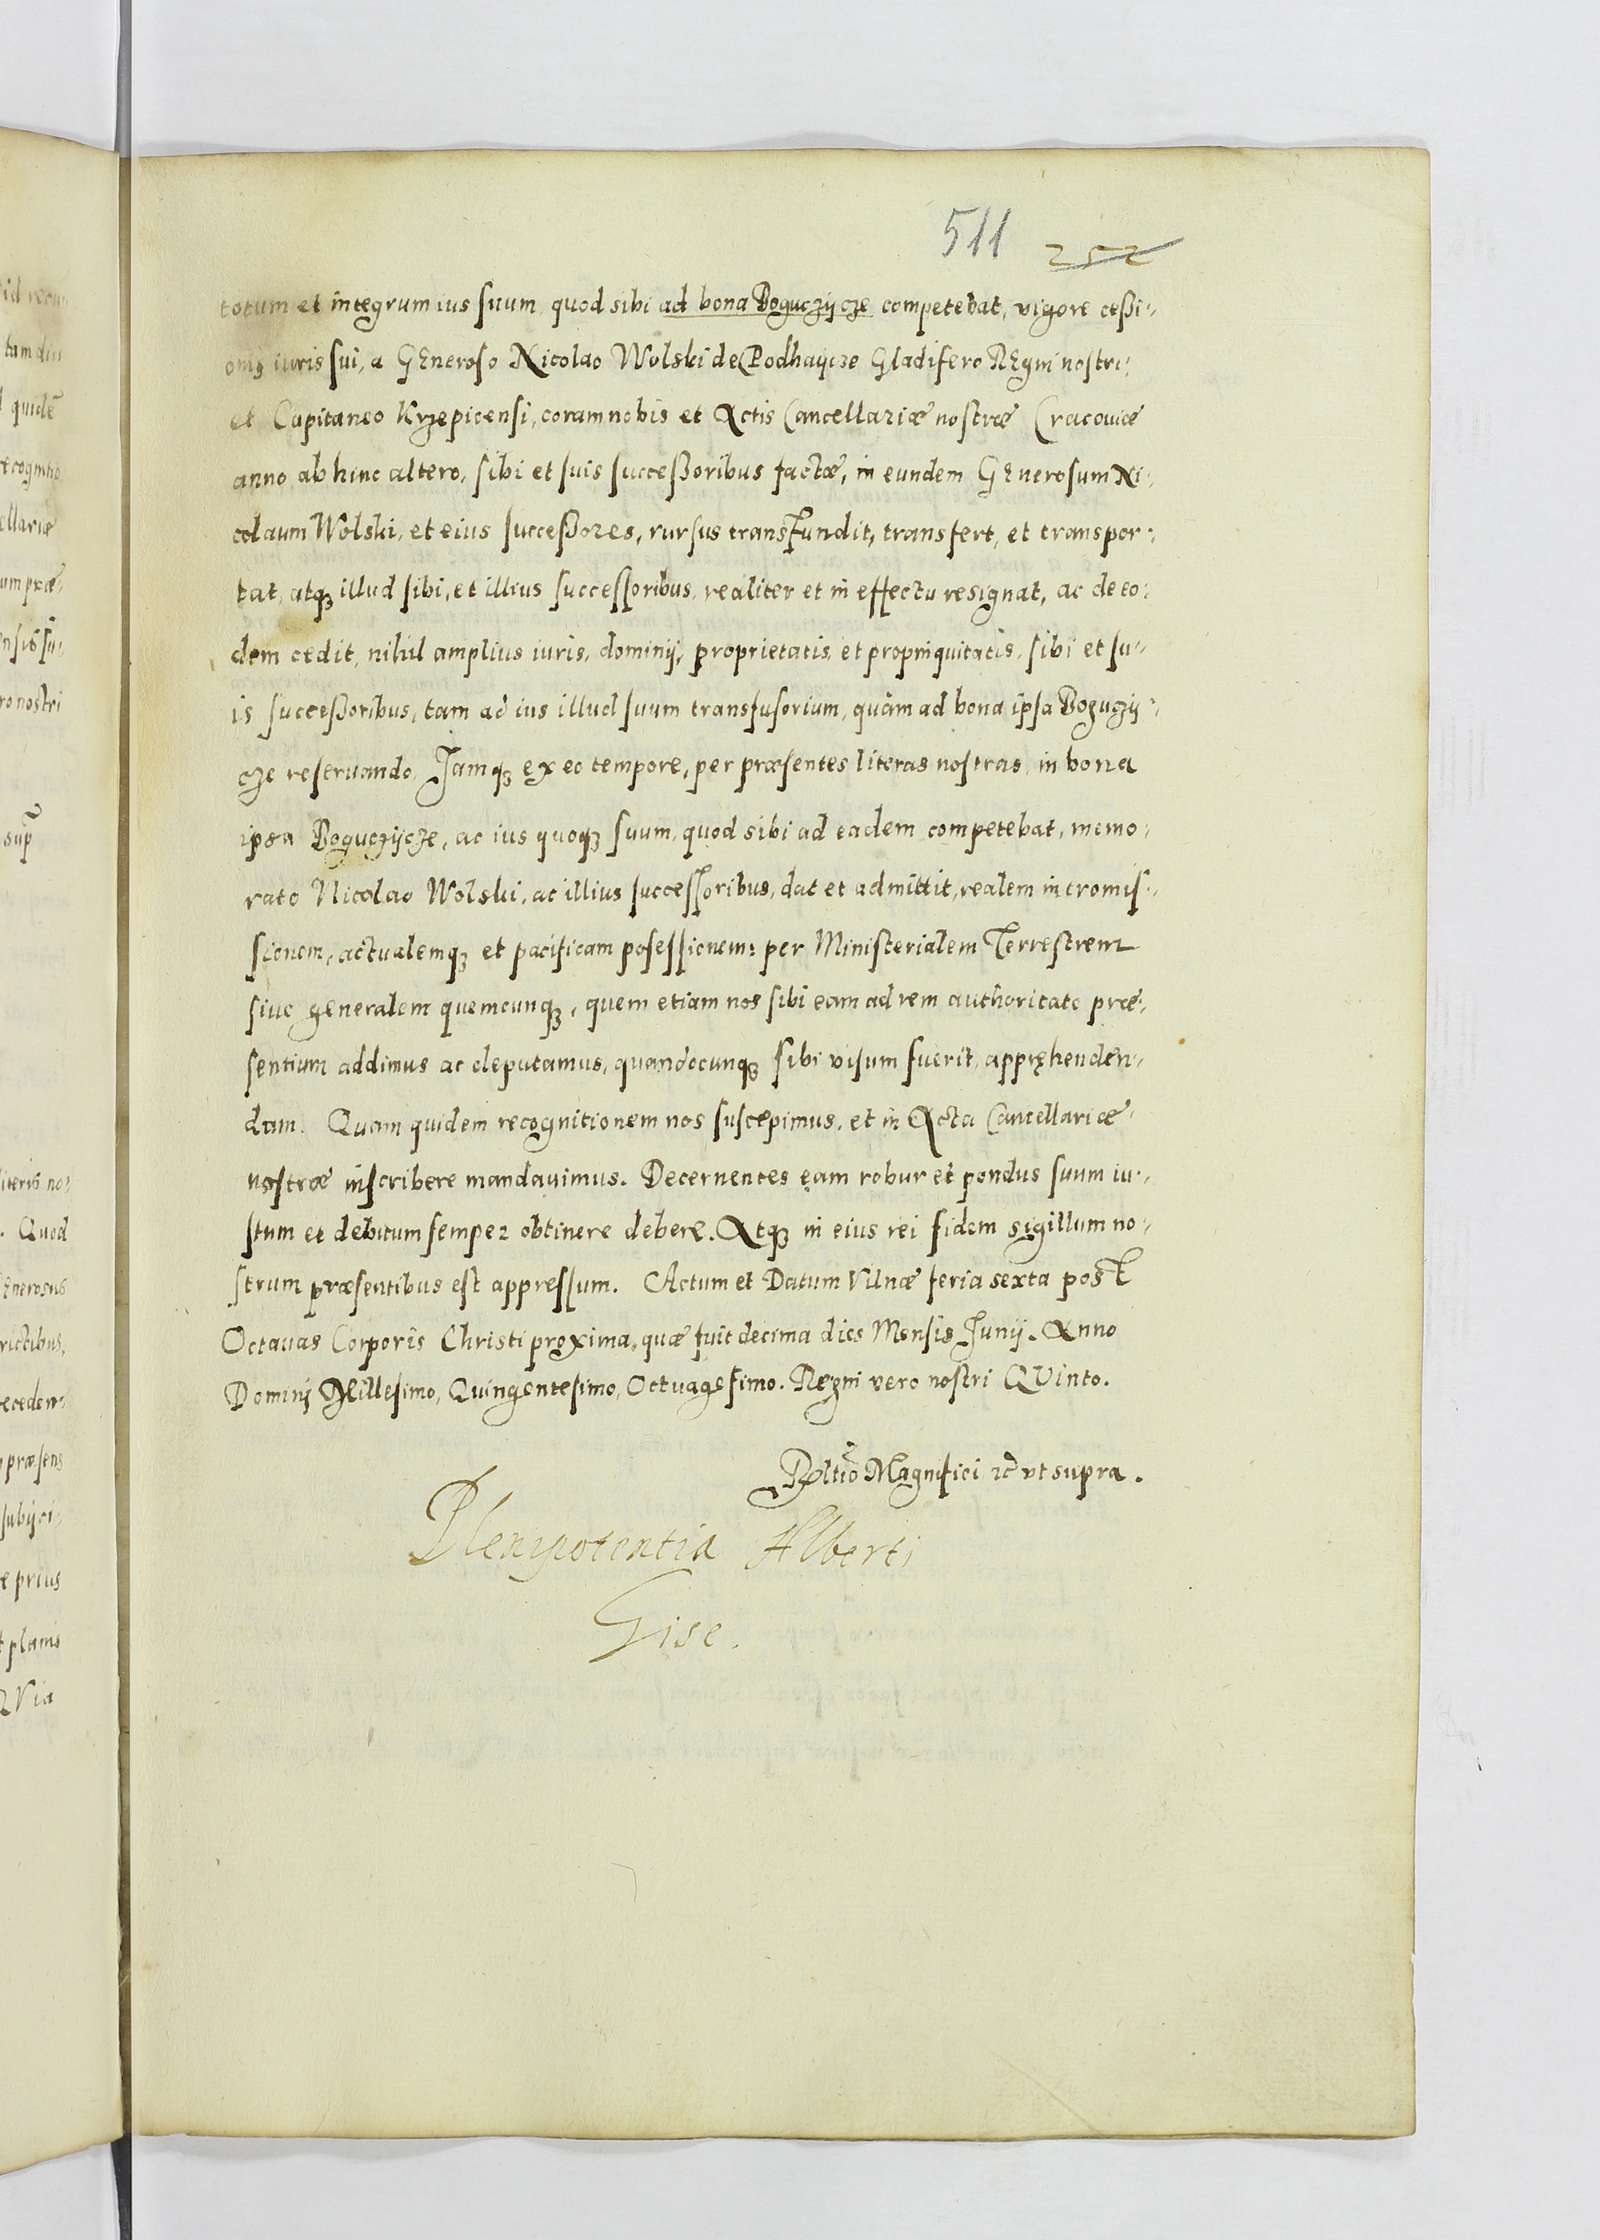 511 252
totum et integrum ius suum quod sibi ad bona Boguczijcze competebat, vigore ceßi-
onis iuris sui, a GEneroso Nicolao Wolski de Podhayicze Gladifero REgni nostri,
et Capitaneo Krzepicensi, coram nobis et Actis Cancellariæ nostræ Cracouiæ
anno ab hinc altero, sibi et suis succeßoribus factæ, in eundem GEnerosum Ni-
colaum Wolski, et eius succeßores, rursus transfundit, transfert, et transpor-
tat, atq illud sibi, et illius successoribus, realiter et in effectu resignat, ac de eo-
dem cedit, nihil amplius iuris, dominij, proprietatis et propinquitatis, sibi et su-
is succeßoribus, tam ad ius illud suum transfusorium, quàm ad bona ipsa Boguczij-
cze reseruando. Jamq ex eo tempore, per præsentes literas nostras, in bona
ipsa Boguczijcze, ac ius quoq suum, quod sibi ad eadem competebat, memo-
rato Nicolao Wolski, ac illius successoribus, dat et admittit, realem intromis-
sionem, actualemq et pacificam posessionem: per Ministerialem Terrestrem
siue generalem quemcunq, quem etiam nos sibi eam ad rem authoritate præ-
sentium addimus ac deputamus, quandocunq sibi visum fuerit, appręhenden-
dam. Quam quidem recognitionem nos suscepimus, et in Acta Cancellariæ
nostræ inscribere mandauimus. Decernentes eam robur et pondus suum iu-
stum et debitum semper obtinere debere. Atq in eius rei fidem sigillum no-
strum præsentibus est appressum. Actum et Datum Vilnæ feria sexta post
Octauas Corporis Christi proxima, quæ fuit decima dies Mensis Junij. Anno
Domini Millesimo, Quingentesimo, Octuagesimo. Regni vero nostri QVinto.
Rltio Magnifici etc vt supra.
Plenipotentia Alberti
Gise.